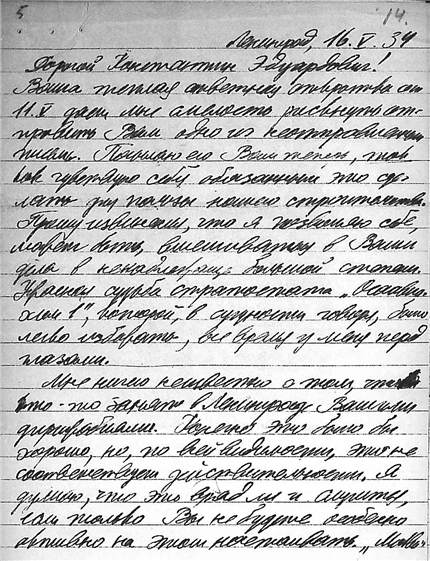 5 14.
Ленинград, 16.V.34
Дорогой Константин Эдуардович!
Ваша теплая ответная открытка от
11.V дает мне смелость рискнуть от-
править Вам одно из неотправленных
писем. Посылаю его Вам теперь, так
как чувствую себя обязанным это сде-
лать для пользы нашего строительства.
Прошу извинения, что я позволяю себе,
может быть, вмешиваться в Ваши
дела в ненадлежаще большой степени.
Ужасная судьба стратостата „Осоавиа-
хим 1", которой, в сущности говоря, было
легко избежать, все время у меня перед
глазами.
Мне ничего неизвестно о том, чтобы
кто-то занят в Ленинграде Вашими
дирижаблями. Конечно это было бы
хорошо, но, по всей видимости, это не
соответствует действительности. Я
думаю, что это вряд ли и случится,
если только Вы не будете особенно
активно на этом настаивать.